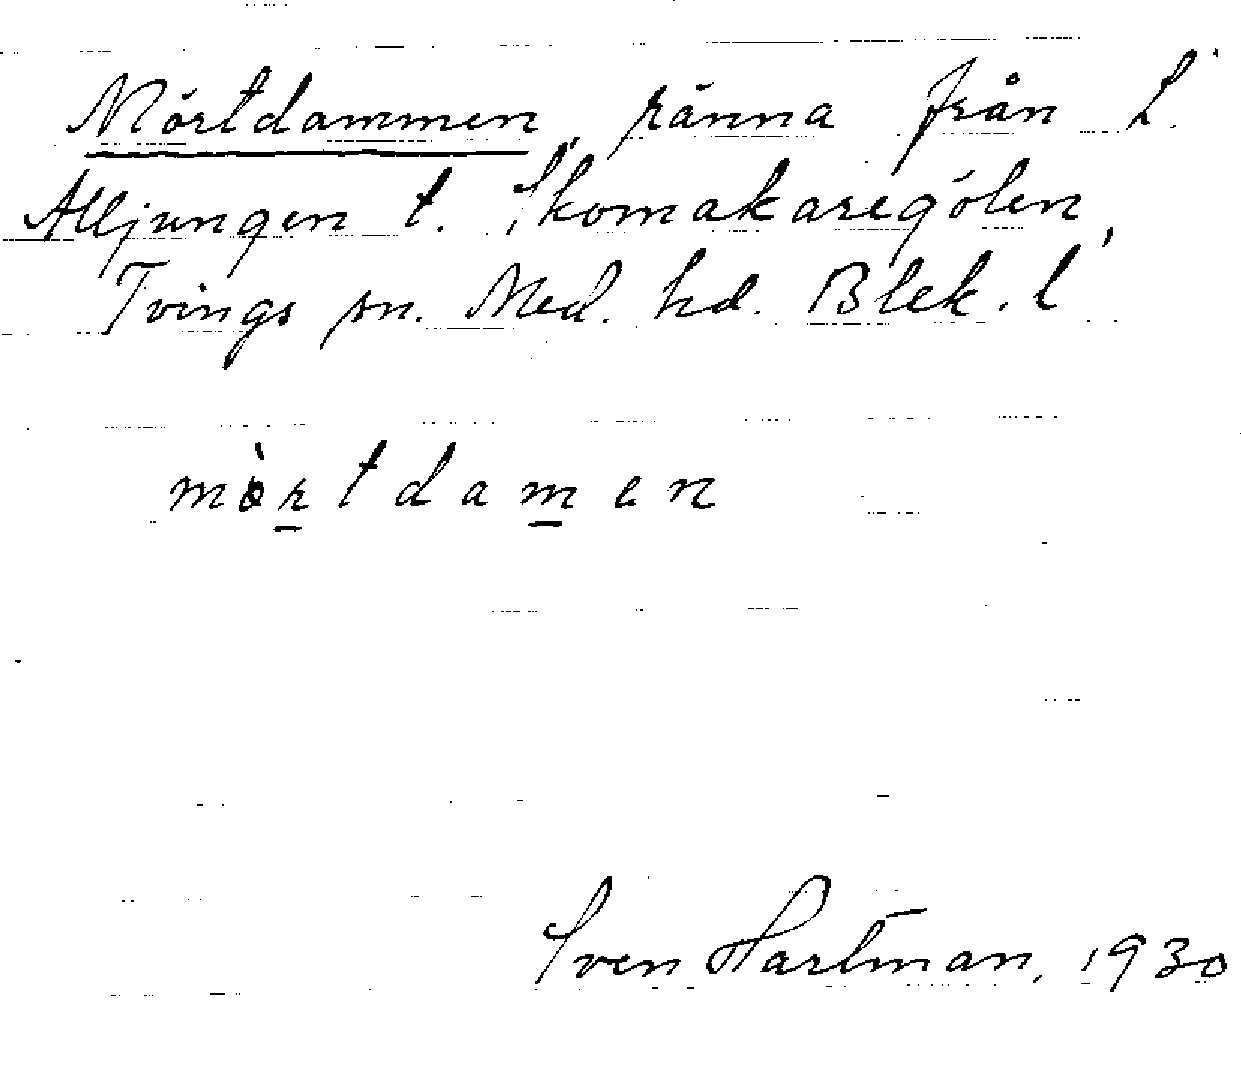 Mörtdammen, ränna från L.
Alljungen t. Skomakaregölen,
Tvings sn. Med. hd. Blek. l
mòrtdamen
Sven Hartman, 1930